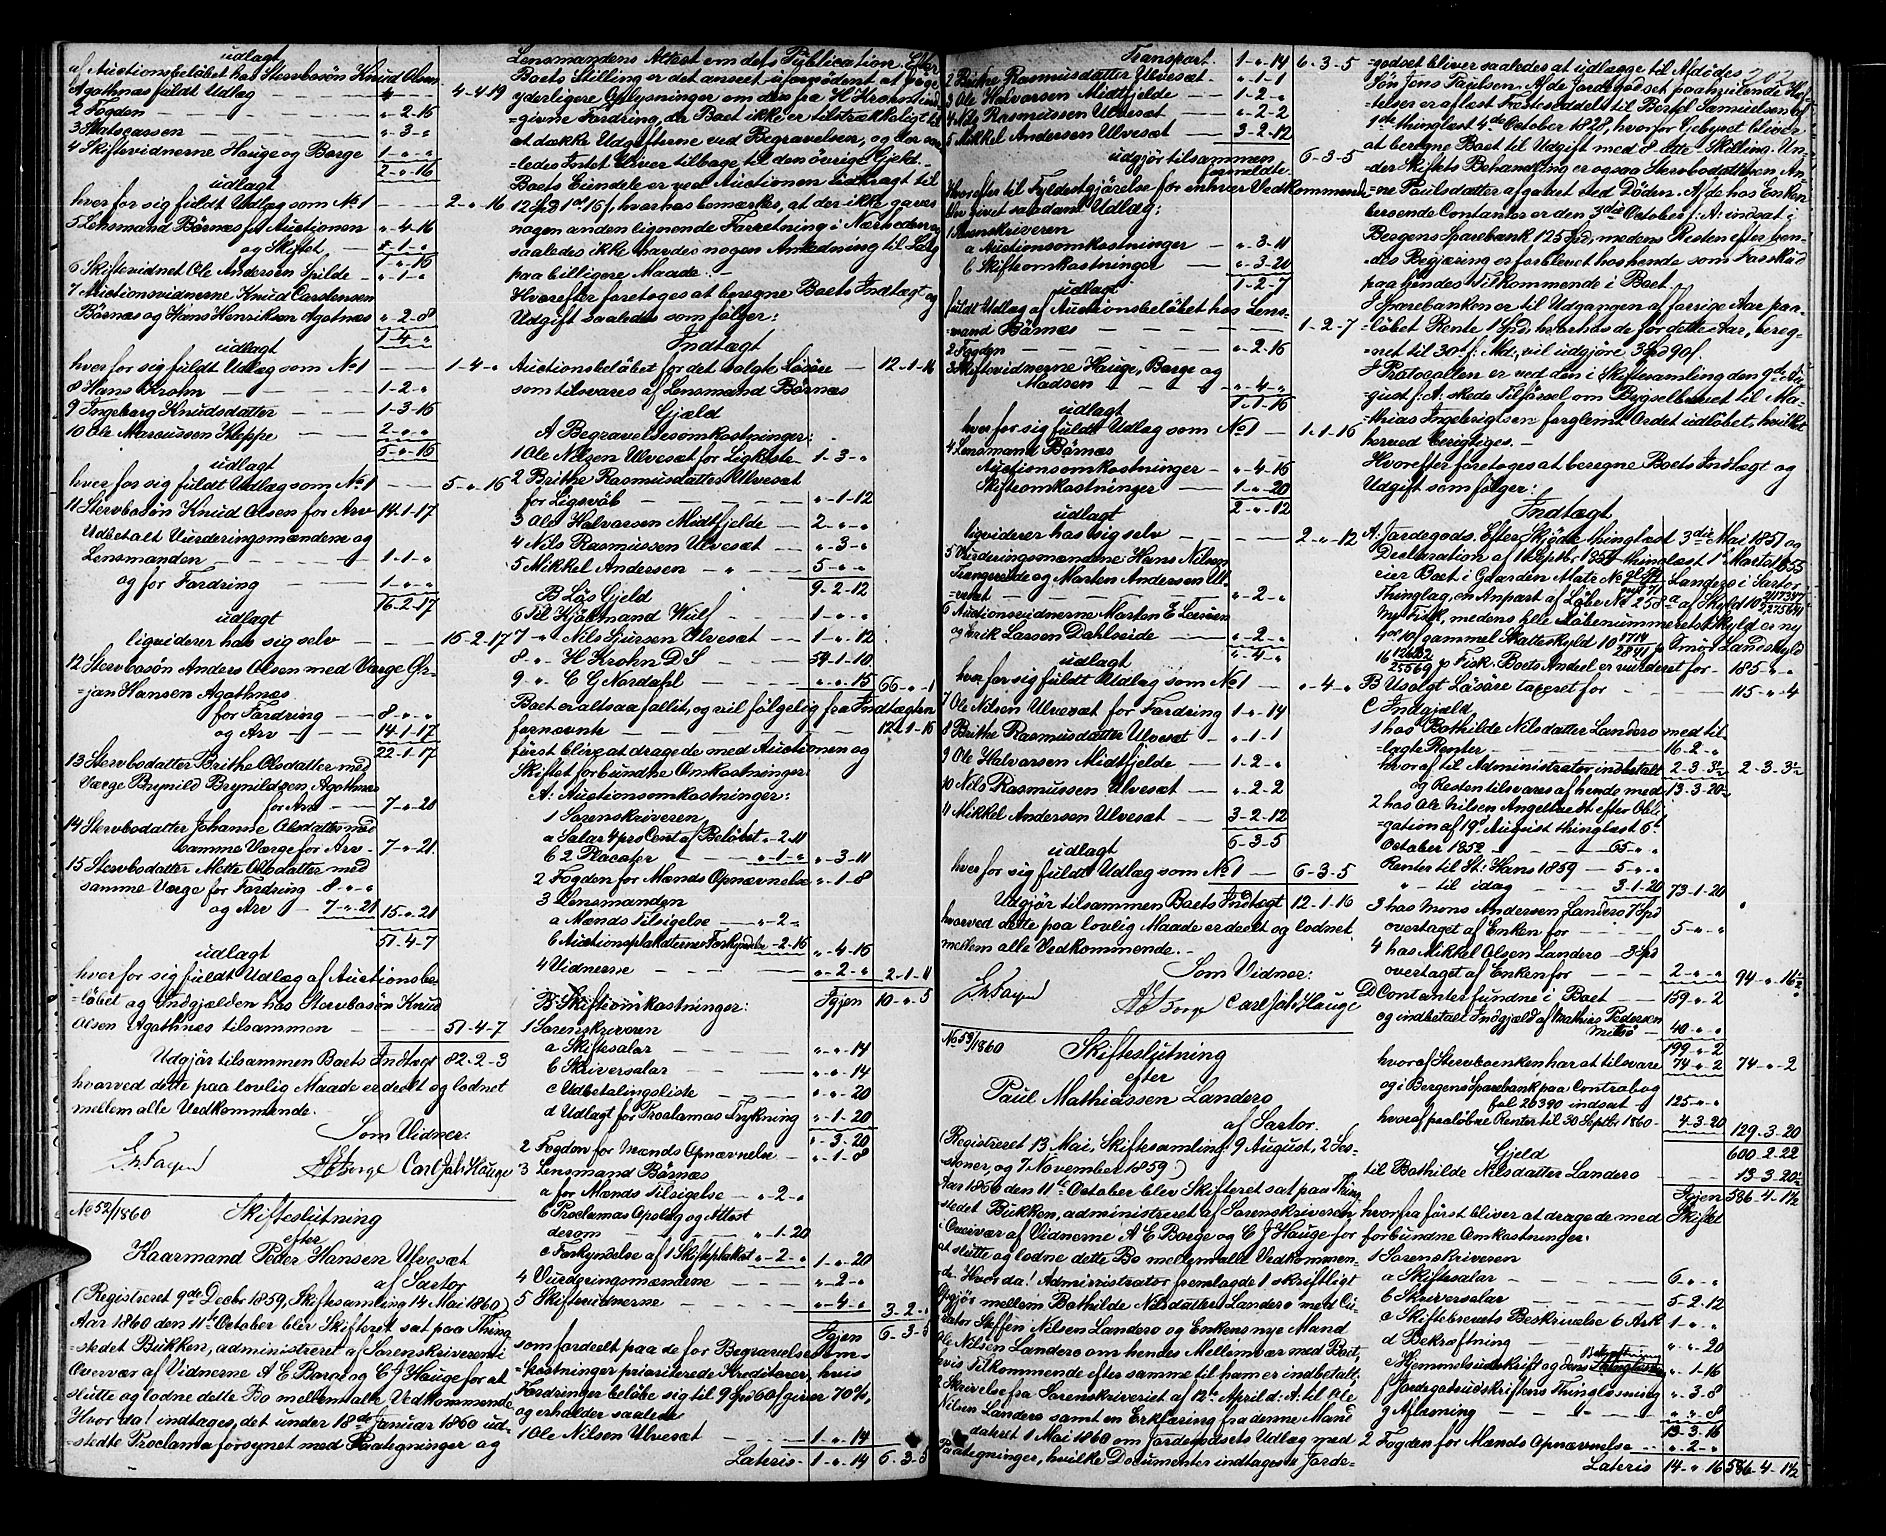 udlagt
af Auctionsbeløbet hos Stervbosøn Knud Olsen
Agothnæs fuldt Udlæg — 4-4-19
2 Fogden — „-2-16
3 Statscassen — „-3-„
4 Skiftevidnerne Hauge og Borge 1-„-„
2-„-16
udlagt
hver for sig fuldt Udlæg som No 1 — 2-„-16
5 Lensmand Börnæs for Auctionen „-4-16
og Skiftet —
1-„-16
6 Skiftevidnet Ole Andersen Spilde — „-1-„
7 Auctionsvidnerne Knud Carstensen
Börnæs og Hans Henriksen Agotnæs „-2-8
1-4-„
udlagt
hver for sig fuldt Udlæg som No 1 — 1-4-„
8 Hans Krohn — 1-2-„
9 Ingeborg Knudsdatter — 1-3-16
10 Ole Marcussen Kleppe — 2-„-„
5-„-16
udlagt
hver for sig fuldt Udlæg som No 1 — 5-„-16
11 Stervbosön Knud Olsen for Arv 14-1-17
Udbetalt Vurderingsmændene og
Lensmanden — 1-1-„
og for Fordring — 1-„-„
16-2-17
udlagt
liqviderer hos sig selv — 16-2-17
12 Stervbosön Anders Olsen med Værge Ør-
=jan Hansen Agothnæs
for Fordring — 8-„-„
og Arv — 14-1-17
22-1-17
13 Stervbodatter Brithe Olsdatter med
Værge Brynild Brynildsen Agothnæs
for Arv — 7-„-21
14 Stervbodatter Johanne Olsdatter med
samme Værge for Arv — 7-„-21
15 Stervbodatter Mette Olsdatter med
samme Værge for Fordring 8-„-„
og Arv — 7-„-21 15-„-21
51-4-7
udlagt
hver for sig fuldt Udlæg af Auctionsbe-
=löbet og Indgjælden hos Stervbosön Knud
Olsen Agothnæs tilsammen — 51-4-7
Udgjør tilsammen Boets Indtægt 82-2-3
hvorved dette paa lovlig Maade er deelt og lodnet
mellem alle Vedkommende.
Som Vidner:
A E Borge Carl Joh. Hauge
No 52/1860 Skifteslutning
efter
Kaarmand Peder Hansen Ulvesæt
af Sartor
(Registreret 9de Decbr 1859, Skiftesamling 14 Mai 1860)
Aar 1860 den 11te October blev Skifteret sat paa Thing
=stedet Bukken, administreret af Sorenskriveren i
Overvær af Vidnerne A E Borge og C J Hauge for at
slutte og lodne dette Bo mellem alle Vedkommende,
Hvor da! indtages, det under 18de Januar 1860 ud-
=stedte Proclama forsynet med Paategninger og
Lensmandens Attest om dets Publication. Efter
Boets Stilling er det anseet ufornödent at søge
yderligere Oplysninger om den fra H Krohn ind
=givne Fordring, da Boet ikke er tilstrækkeligt til
at dække Udgifterne ved Begravelsen, og der saa
=ledes Intet bliver tilbage til den övrige Gjeld.
Boets Eiendele er ved Auctionen udbragt til
12 Spd 1 ort 16 s, hvorhos bemærkes, at der ikke gaves
nogen anden lignende Forretning i Nærheden og
saaledes ikke havdes nogen Anledning til Salg
paa billigere Maade. —
Hvorefter foretoges at beregne Boets Indtægt og
Udgift saaledes som følger:
Indtægt
Auctionsbeløbet for det solgte Løsøre — 12-1-16
som tilsvares af Lensmand Börnæs
Gjæld
A Begravelsesomkostninger:
1 Ole Nilsen Ulvesæt for Ligkiste — 1-3-„
2 Brithe Rasmusdatter Ulvesæt
for Ligsvöb — „-1-12
3 Ole Halvorsen Midtfjelde — 2-„-„
4 Nils Rasmussen Ulvesæt — „-3-„
5 Mikkel Andersen — „ 5-„-„
9-2-12
B Lös Gjeld
6 Til Kjöbmand Wulf — 1-„-„
7 „ Nils Sjursen Ulvesæt — 1-„-12
8 „ H Krohn D S — 54-1-10
9 „ C G Nordahl — „-„-15 66-„-1
Boet er altsaa fallit, og vil fölgelig fra Indtægten
fornævnte — 12-1-16
först blive at dragede med Auctionen og
Skiftet forbundne Omkostninger:
A: Auctionsomkostninger:
1 Sorenskriveren
a Salar 4 pro Cent af Beløbet „-2-11
b 2 Placater — „-1-„ „-3-11
2 Fogden for Mænds Opnævnelse „-1-8
3 Lensmanden
a Mænds Tilsigelse — „-2-„
b Auctionsplakaternes Forkyndelse „-2-16 „-4-16
4 Vidnerne — „-2-„ 2-1-11
Igjen 10-„-5
B. Skifteomkostninger:
1 Sorenskriveren
a Skiftesalar — „-„-14
b Skriversalar — „-„-14
c Udbetalingsliste — „-„-20
d Udlagt for Proclamas Trykning „-1-20
„-3-20
2 Fogden for Mænds Opnævnelse — „-1-8
3 Lensmand Börnæs
a for Mænds Tilsigelse — „-2-„
b Proclamas Opslag og Attest
derom — „-1-20
c Forkyndelse af 1 Skifteplakat „-2-„ 1-„-20
4 Vurderingsmændene — „-2-„
5 Skiftevidnerne — „-4-„ 3-2-„
Igjen 6-3-5
som fordeelt paa de for Begravelsesom-
=kostninger prioriterede Kreditorer, hvis
Fordringer beløbe sig til 9 Spd 60 s, giver 70 %,
og erholder saaledes
1 Ole Nilsen Ulvesæt — 1-„-14
Lateris — 1-„-14 6-3-5
Transport 1-„-14 6-3-5
2 Brithe Rasmusdatter Ulvesæt — „-1-1
3 Ole Halvorsen Midtfjelde — 1-2-„
4 Nils Rasmussen Ulvesæt — „-2-2
5 Mikkel Andersen Ulvesæt — 3-2-12
udgjør tilsammen 6-3-5
formeldte
Hvorefter til Fyldestgjørelse for enhver Vedkommende
blev givet saadant Udlæg:
1 Sorenskriveren
a Auctionsomkostninger — „-3-11
b Skifteomkostninger — „-3-20
1-2-7
udlagt
fuldt Udlæg af Auctionsbeløbet hos Lens-
=mand Börnæs — 1-2-7
2 Fogden — „-2-16
3 Skiftevidnerne Hauge, Borge og
Madsen — „-4-„
1-1-16
udlagt
hver for sig fuldt Udlæg som No 1 — 1-1-16
4 Lensmand Börnæs
Auctionsomkostninger — „-4-16
Skifteomkostninger — 1-„-20
2-„-12
udlagt
liqviderer hos sig selv — 2-„-12
5 Vurderingsmændene Hans Nilsen
Trengereide og Morten Andersen Ul-
=vesæt — „-2-„
6 Auctionsvidnerne Morten E Leersen
og Erik Larsen Dahlseide — „-2-„
„-4-„
udlagt
hver for sig fuldt Udlæg som No 1 — „-4-„
7 Ole Nilsen Ulvesæt for Fordring 1-„-14
8 Brithe Rasmusdatter Ulvesæt — „-1-1
9 Ole Halvorsen Midtfjelde — 1-2-„
10 Nils Rasmussen Ulvesæt — „-2-2
4 Mikkel Andersen Ulvesæt — 3-2-12
6-3-5
udlagt
hver for sig fuldt Udlæg som No 1 — 6-3-5
Udgjør tilsammen Boets Indtægt 12-1-16
hvorved dette paa lovlig Maade er deelt og lodnet
mellem alle Vedkommende.
Som Vidner:
A E Borge Carl Joh. Hauge
No 53/1860 Skifteslutning
efter
Paul Mathiassen Landero
af Sartor.
(Registreret 13 Mai, Skiftesamling 9 August, 2 Ses-
sioner, og 7 November 1859)
Aar 1860 den 11te October blev Skifteret sat paa Thing
stedet Bukken, administreret af Sorenskriveren
i Overvær af Vidnerne A E Borge og C J Hauge for
at slutte og lodne dette Bo mellem alle Vedkommen-
de. Hvor da! Administrator fremlagde 1 skriftligt
Opgjör mellem Bothilde Nilsdatter Landero med Cu-
rator Steffen Nilsen Landero og Enkens nye Mand
Ole Nilsen Landero om hendes Mellemvær med Boet,
hvis Tilkommende efter samme til ham er indbetalt;
Skrivelse fra Sorenskriveriet af 12te April d. A. til Ole
Nilsen Landero samt en Erklæring fra denne Mand
dateret 1 Mai 1860 om Jordegodsets Udlæg med
Paategninger, hvilke Documenter indtages. Jorde-
202
=godset bliver saaledes at udlægge til Afdödes
Sön Jens Paulsen. Af de Jordegodset paahvilende Hef-
telser er aflæst Fæsteseddel til Bertel Samuelsen
thinglæst 4de October 1828, hvorfor Gebyret bliver
at beregne Boet til Udgift med 8 otte Skilling. Un-
der Skiftets Behandling er ogsaa Stervbodatteren An-
ne Paulsdatter afgaaet ved Döden. Af de hos Enken
beroende Contanter er den 3die October f: A: indsat i
Bergens Sparebank 125 Spd, medens Resten efter hen-
des Begjæring er forblevet hos hende som Forskud
paa hendes Tilkommende i Boet.
I Sparebanken er til Udgangen af forrige Aar paa-
löbet Rente 1 Spd, hvorhos de for dette Aar, bereg-
=net til 30te f: Md:, vil udgjøre 3 Spd 90 s.
I Protocollen er ved den i Skiftesamling den 9de Au-
gust f: A: skede Tilförsel om Bygselbrevet til Ma-
thias Ingebrigtsen forglemt Ordet udløbet, hvilket
herved berigtiges. —
Hvorefter foretoges at beregne Boets Indtægt og
Udgift som følger:
Indtægt
A: Jordegods. Efter Skjöde thinglæst 3die Mai 1851 og
Declaration af 11 Septbr. 1854 thinglæst 1 Marts 1855
eier Boet i Gaarden Landero i Sartor
Thinglag, en Anpart af Löbe No 258 a af Skyld
ny Fisk, medens hele Löbenummerets Skyld er ny
gammel Skatteskyld Smör Landskyld
Fisk. Boets Andeel er vurderet for — 185-„-„
B Usolgt Lösöre taxeret for — 115-„-4
C Indgjæld
1 hos Bothilde Nilsdatter Landero med til
=lagte Renter — 16-2-„
hvoraf til Administrator indbetalt 2-3-3½ 2-3-3½
og Resten tilsvares af hende med 13-3-20½
2 hos Ole Nilsen Angeltvedt efter Obli-
=gation af 19de August thinglæst 6te
October 1852 — 65-„-„
Renter til St: Hans 1859 — 5-„-„
„ til idag — 3-1-20 73-1-20
3 hos Mons Andersen Landero 7 Spd
overtaget af Enken for — 5-„-„
4 hos Mikkel Olsen Landero — 3 Spd
overtaget af Enken for — 2-„-„ 94-„-16½
D Contanter fundne i Boet — 159-„-2
og indbetalt Indgjæld af Mathias Pedersen
40-„-„
199-„-2
hvoraf Stervboenken har at tilsvare 74-„-2 74-„-2
og i Bergens Sparebank paa Contrabog
fol 20390 indsat — 125-„-„
hvoraf paalöbne Renter til 30 Septbr 1860 — 4-3-20 129-3-20
600-2-22
Gjeld
til Bothilde Nilsdatter Landero — 13-3-20½
Igjen 586-4-1½
hvorfra först bliver at dragede med Skiftet
forbundne Omkostninger:
1 Sorenskriveren
a Skiftesalar — 6-„-„
b Skriversalar — 5-2-12
c Skiftebrevets Beskrivelse 6 Ark 1-„-„
d Bekræftning — „-„-20
e Hjemmelsudskrift og dens Bekræftning „-1-16
f Jordegodsudskriftens Thinglæsning „-3-8
g Aflæsning — „-„-8
13-3-16
2 Fogden for Mænds Opnævnelse „-2-„
Lateris 14-„-16 586-4-1½